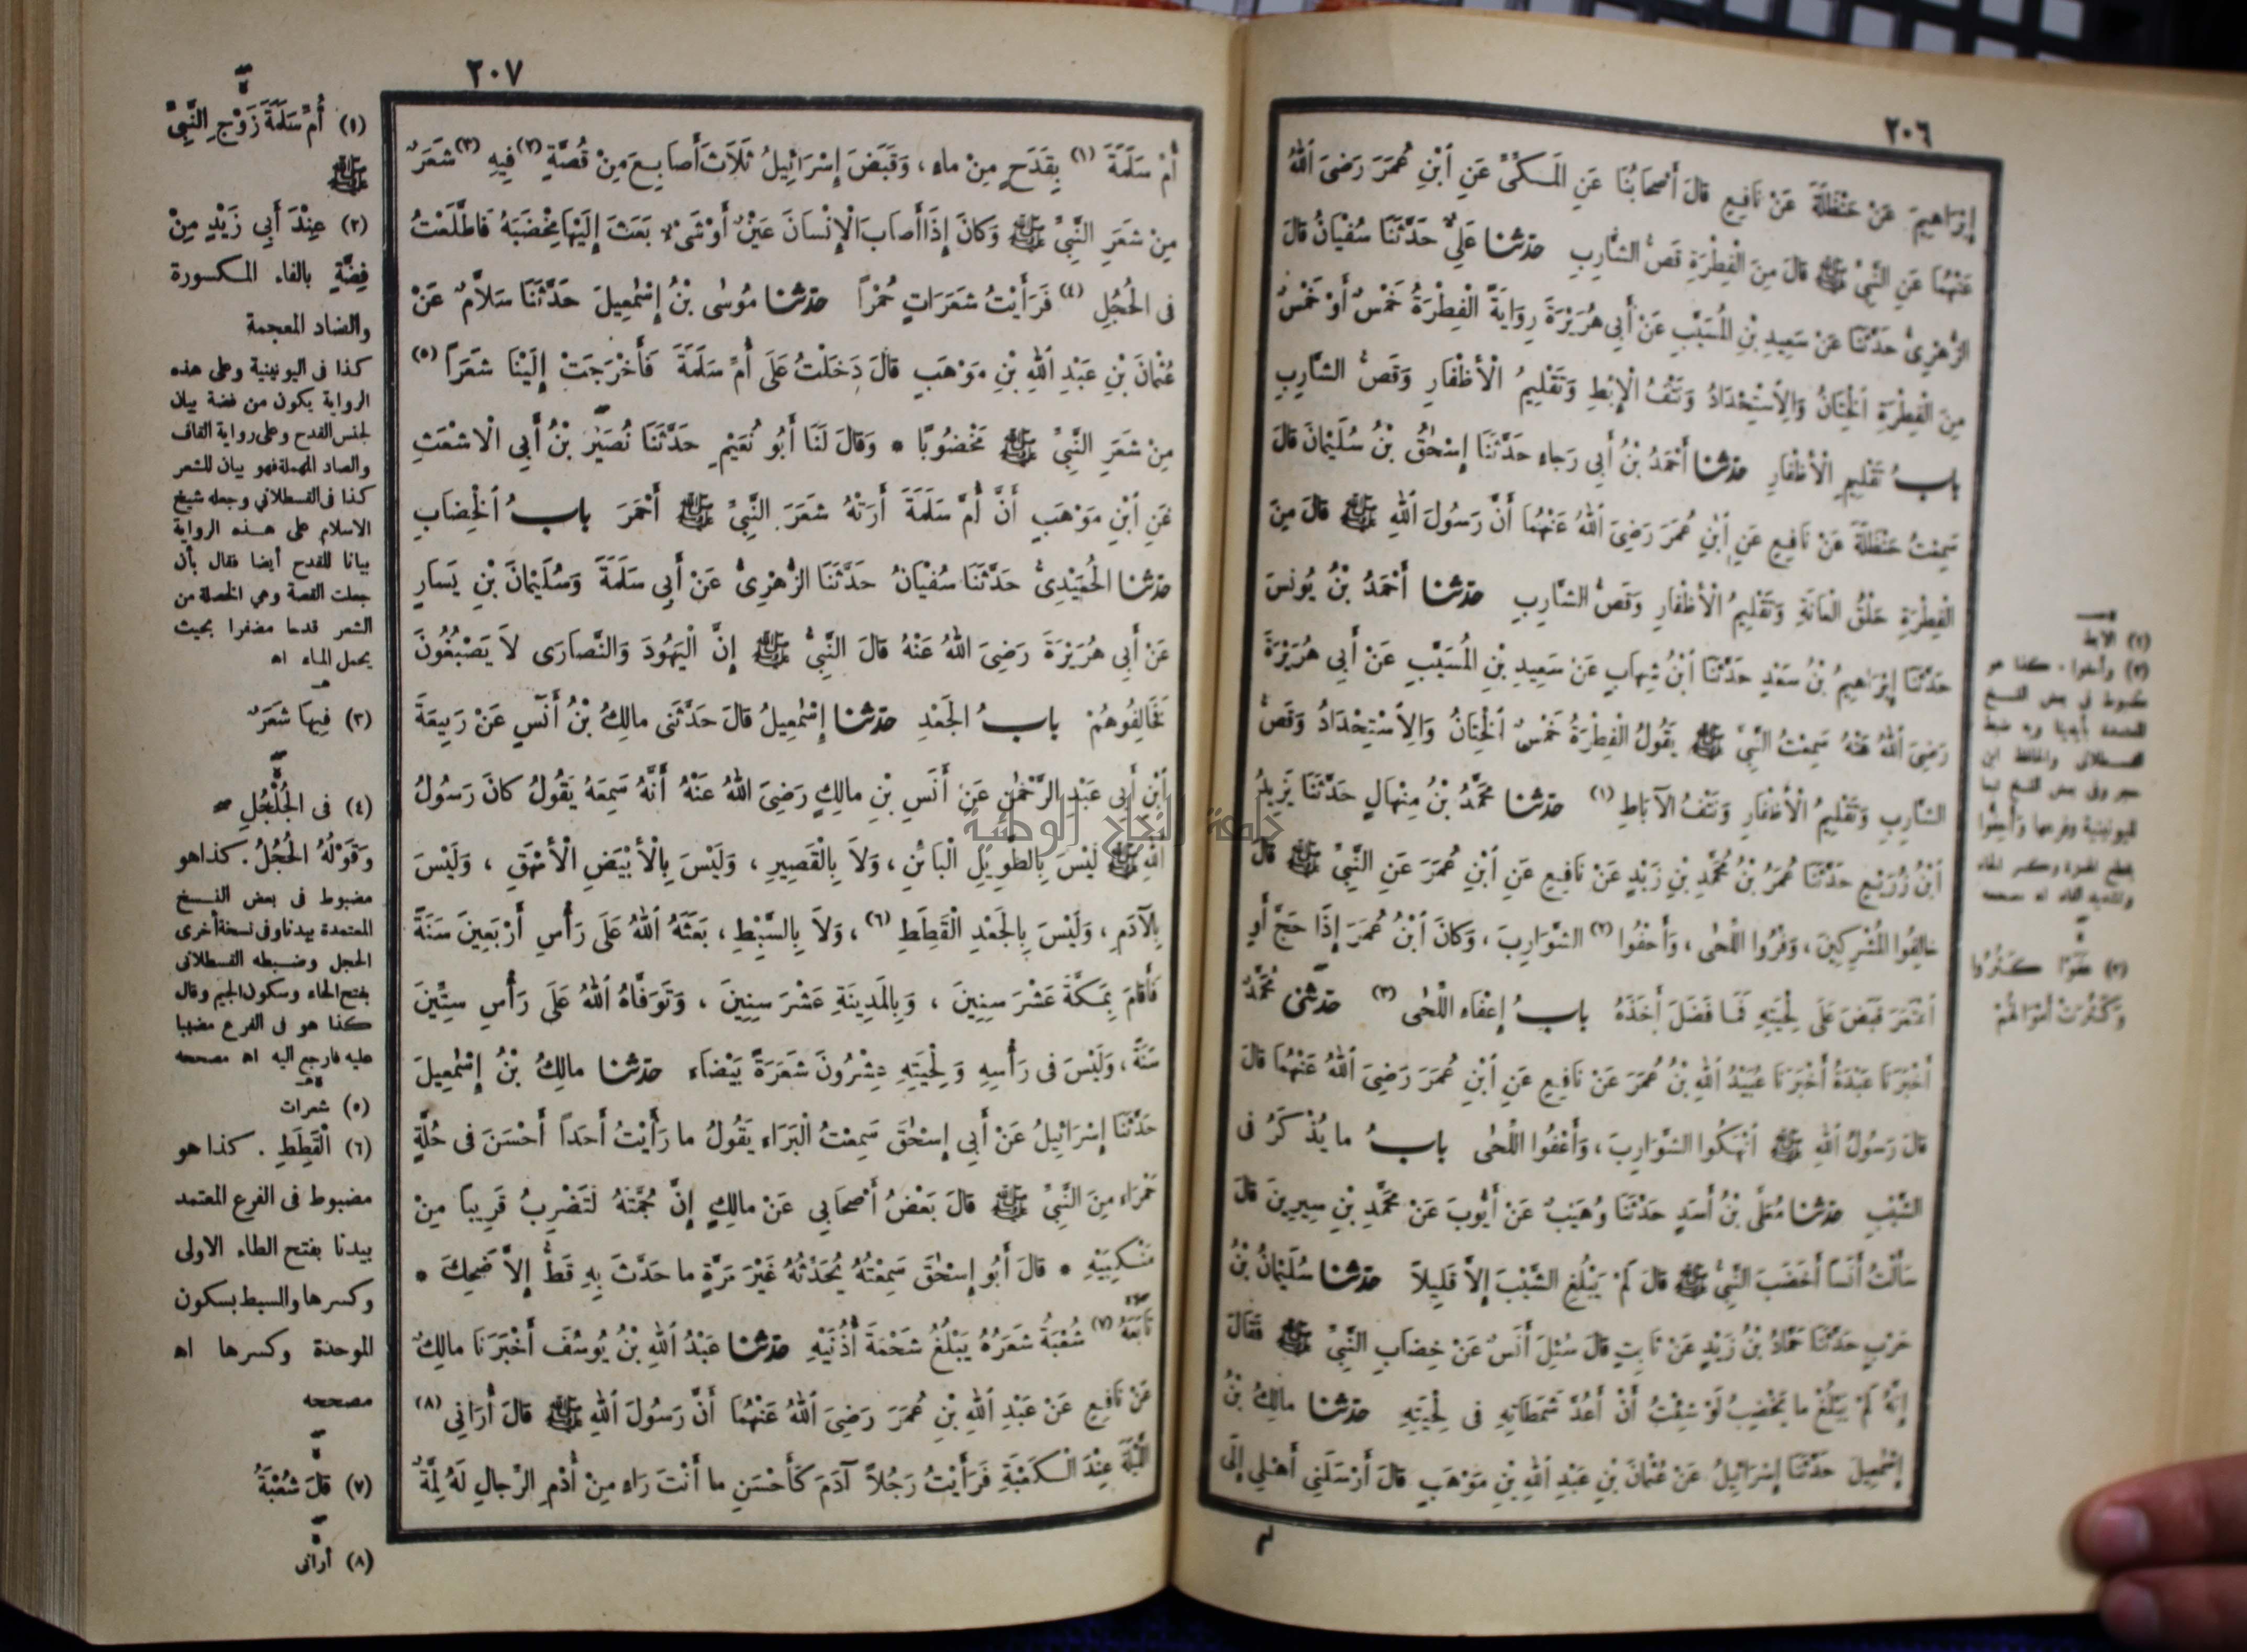 ٢٠٦
إِبْرَاهِيمَ عَنْ حَنْظَلَةَ عَنْ نَافِعٍ قَالَ أَصْحَابُنَا عَنِ الْمَكِّيِّ عَنِ ابْنِ عُمَرَ رَضِيَ اللهُ
عَنْهُمَا عَنِ النَّبِيِّ ﷺ قَالَ مِنَ الْفِطْرَةِ قَصُّ الشَّارِبِ حدثنا عَلِيٌّ حَدَّثَنَا سُفْيَانُ قَالَ
الزُّهْرِيُّ حَدَّثَنَا عَنْ سَعِيدِ بْنِ الْمُسَيَّبِ عَنْ أَبِي هُرَيْرَةَ رِوَايَةً الْفِطْرَةُ خَمْسٌ أَوْ خَمْسٌ
مِنَ الْفِطْرَةِ الْخِتَانُ وَالِاسْتِحْدَادُ وَنَتْفُ الْإِبْطِ وَتَقْلِيمُ الْأَظْفَارِ وَقَصُّ الشَّارِبِ
باب تَقْلِيمِ الْأَظْفَارِ حدثنا أَحْمَدُ بْنُ أَبِي رَجَاءٍ حَدَّثَنَا إِسْحٰقُ بْنُ سُلَيْمَانَ قَالَ
سَمِعْتُ حَنْظَلَةَ عَنْ نَافِعٍ عَنِ ابْنِ عُمَرَ رَضِيَ اللهُ عَنْهُمَا أَنَّ رَسُولَ اللهِ ﷺ قَالَ مِنَ
الْفِطْرَةِ حَلْقُ الْعَانَةِ وَتَقْلِيمُ الْأَظْفَارِ وَقَصُّ الشَّارِبِ حدثنا أَحْمَدُ بْنُ يُونُسَ
حَدَّثَنَا إِبْرَاهِيمُ بْنُ سَعْدٍ حَدَّثَنَا ابْنُ شِهَابٍ عَنْ سَعِيدِ بْنِ الْمُسَيَّبِ عَنْ أَبِي هُرَيْرَةَ
رَضِيَ اللهُ عَنْهُ سَمِعْتُ النَّبِيَّ ﷺ يَقُولُ الْفِطْرَةُ خَمْسٌ الْخِتَانُ وَالِاسْتِحْدَادُ وَقَصُّ
الشَّارِبِ وَتَقْلِيمُ الْأَظْفَارِ وَنَتْفُ الْآبَاطِ (١) حدثنا مُحَمَّدُ بْنُ مِنْهَالٍ حَدَّثَنَا يَزِيدُ
ابْنُ زُرَيْعٍ حَدَّثَنَا عُمَرُ بْنُ مُحَمَّدِ بْنِ زَيْدٍ عَنْ نَافِعٍ عَنِ ابْنِ عُمَرَ عَنِ النَّبِيِّ ﷺ قَالَ
خَالِفُوا الْمُشْرِكِينَ ، وَفِّرُوا اللِّحَى ، وَأَحْفُوا (٢) الشَّوَارِبَ ، وَكَانَ ابْنُ عُمَرَ إِذَا حَجَّ أَوِ
اعْتَمَرَ قَبَضَ عَلَى لِحْيَتِهِ فَمَا فَضَلَ أَخَذَهُ باب إِعْفَاءِ اللِّحَى (٣) حدثني مُحَمَّدٌ
أَخْبَرَنَا عَبْدَةُ أَخْبَرَنَا عُبَيْدُ اللهِ بْنُ عُمَرَ عَنْ نَافِعٍ عَنِ ابْنِ عُمَرَ رَضِيَ اللهُ عَنْهُمَا قَالَ
قَالَ رَسُولُ اللهِ ﷺ انْهَكُوا الشَّوَارِبَ ، وَأَعْفُوا اللِّحَى باب مَا يُذْكَرُ فِى
الشَّيْبِ حدثنا مُعَلَّى بْنُ أَسَدٍ حَدَّثَنَا وُهَيْبٌ عَنْ أَيُّوبَ عَنْ مُحَمَّدِ بْنِ سِيرِينَ قَالَ
سَأَلْتُ أَنَسًا أَخَضَبَ النَّبِيُّ ﷺ قَالَ لَمْ يَبْلُغِ الشَّيْبَ إِلَّا قَلِيلًا حدثنا سُلَيْمَانُ بْنُ
حَرْبٍ حَدَّثَنَا حَمَّادُ بْنُ زَيْدٍ عَنْ ثَابِتٍ قَالَ سُئِلَ أَنَسٌ عَنْ خِضَابِ النَّبِيِّ ﷺ فَقَالَ
إِنَّهُ لَمْ يَبْلُغْ مَا يَخْضِبُ لَوْ شِئْتُ أَنْ أَعُدَّ شَمَطَاتِهِ فِى لِحْيَتِهِ حدثنا مَالِكُ بْنُ
إِسْمٰعِيلَ حَدَّثَنَا إِسْرَائِيلُ عَنْ عُثْمَانَ بْنِ عَبْدِ اللهِ بْنِ مَوْهَبٍ قَالَ أَرْسَلَنِي أَهْلِي إِلَى
(١) الابط
(٢) وأحفوا . كذا هو
مضبوط فى بعض النسخ
(٣) عَفَوْا كَثُرُوا
وَكَثُرَتْ أَمْوَالُهُمْ
٢٠٧
أُمِّ سَلَمَةَ (١) بِقَدَحٍ مِنْ مَاءٍ ، وَقَبَضَ إِسْرَائِيلُ ثَلَاثَ أَصَابِعَ مِنْ قُصَّةٍ (٢) فِيهِ (٣) شَعَرٌ
مِنْ شَعَرِ النَّبِيِّ ﷺ وَكَانَ إِذَا أَصَابَ الْإِنْسَانَ عَيْنٌ أَوْ شَىْءٌ بَعَثَ إِلَيْهَا مِخْضَبَهُ فَاطَّلَعْتُ
فِى الْحُجُلِ (٤) فَرَأَيْتُ شَعَرَاتٍ حُمْرًا حدثنا مُوسَى بْنُ إِسْمٰعِيلَ حَدَّثَنَا سَلَّامٌ عَنْ
عُثْمَانَ بْنِ عَبْدِ اللهِ بْنِ مَوْهَبٍ قَالَ دَخَلْتُ عَلَى أُمِّ سَلَمَةَ فَأَخْرَجَتْ إِلَيْنَا شَعَرًا (٥)
مِنْ شَعَرِ النَّبِيِّ ﷺ مَخْضُوبًا * وَقَالَ لَنَا أَبُو نُعَيْمٍ حَدَّثَنَا نُصَيْرُ بْنُ أَبِي الْأَشْعَثِ
عَنِ ابْنِ مَوْهَبٍ أَنَّ أُمَّ سَلَمَةَ أَرَتْهُ شَعَرَ النَّبِيِّ ﷺ أَحْمَرَ باب الْخِضَابِ
حدثنا الْحُمَيْدِيُّ حَدَّثَنَا سُفْيَانُ حَدَّثَنَا الزُّهْرِيُّ عَنْ أَبِي سَلَمَةَ وَسُلَيْمَانَ بْنِ يَسَارٍ
عَنْ أَبِي هُرَيْرَةَ رَضِيَ اللهُ عَنْهُ قَالَ النَّبِيُّ ﷺ إِنَّ الْيَهُودَ وَالنَّصَارَى لَا يَصْبُغُونَ
فَخَالِفُوهُمْ باب الْجَعْدِ حدثنا إِسْمٰعِيلُ قَالَ حَدَّثَنِى مَالِكُ بْنُ أَنَسٍ عَنْ رَبِيعَةَ
ابْنِ أَبِي عَبْدِ الرَّحْمٰنِ عَنْ أَنَسِ بْنِ مَالِكٍ رَضِيَ اللهُ عَنْهُ أَنَّهُ سَمِعَهُ يَقُولُ كَانَ رَسُولُ
اللهِ ﷺ لَيْسَ بِالطَّوِيلِ الْبَائِنِ ، وَلَا بِالْقَصِيرِ ، وَلَيْسَ بِالْأَبْيَضِ الْأَمْهَقِ ، وَلَيْسَ
بِالْآدَمِ ، وَلَيْسَ بِالْجَعْدِ الْقَطِطِ (٦) ، وَلَا بِالسَّبْطِ ، بَعَثَهُ اللهُ عَلَى رَأْسِ أَرْبَعِينَ سَنَةً
فَأَقَامَ بِمَكَّةَ عَشْرَ سِنِينَ ، وَبِالْمَدِينَةِ عَشْرَ سِنِينَ ، وَتَوَفَّاهُ اللهُ عَلَى رَأْسِ سِتِّينَ
سَنَةً ، وَلَيْسَ فِى رَأْسِهِ وَلِحْيَتِهِ عِشْرُونَ شَعَرَةً بَيْضَاءَ حدثنا مَالِكُ بْنُ إِسْمٰعِيلَ
حَدَّثَنَا إِسْرَائِيلُ عَنْ أَبِي إِسْحٰقَ سَمِعْتُ الْبَرَاءَ يَقُولُ مَا رَأَيْتُ أَحَدًا أَحْسَنَ فِى حُلَّةٍ
حَمْرَاءَ مِنَ النَّبِيِّ ﷺ قَالَ بَعْضُ أَصْحَابِي عَنْ مَالِكٍ إِنَّ جُمَّتَهُ لَتَضْرِبُ قَرِيبًا مِنْ
مَنْكِبَيْهِ * قَالَ أَبُو إِسْحٰقَ سَمِعْتُهُ يُحَدِّثُهُ غَيْرَ مَرَّةٍ مَا حَدَّثَ بِهِ قَطُّ إِلَّا ضَحِكَ *
تَابَعَهُ (٧) شُعْبَةُ شَعَرُهُ يَبْلُغُ شَحْمَةَ أُذُنَيْهِ حدثنا عَبْدُ اللهِ بْنُ يُوسُفَ أَخْبَرَنَا مَالِكٌ
عَنْ نَافِعٍ عَنْ عَبْدِ اللهِ بْنِ عُمَرَ رَضِيَ اللهُ عَنْهُمَا أَنَّ رَسُولَ اللهِ ﷺ قَالَ أُرَانِي (٨)
اللَّيْلَةَ عِنْدَ الْكَعْبَةِ فَرَأَيْتُ رَجُلًا آدَمَ كَأَحْسَنِ مَا أَنْتَ رَاءٍ مِنْ أُدْمِ الرِّجَالِ لَهُ لِمَّةٌ
(١) أُمِّ سَلَمَةَ زَوْجِ النَّبِيِّ
ﷺ
(٢) عِنْدَ أَبِي زَيْدٍ مِنْ
فِضَّةٍ بالفاء المكسورة
والضاد المعجمة
كذا فى اليونينية وعلى هذه
الرواية يكون من فضة بيان
لجنس القدح وعلى رواية القاف
والصاد المهملة فهو بيان للشعر
كذا فى القسطلاني وجعله شيخ
الاسلام على هذه الرواية
بيانا للقدح أيضا فقال بأن
جعلت القصة وهى الخصلة من
الشعر قدحا مضفرا بحيث
يحمل الماء اه
(٣) فِيهَا شَعَرٌ
(٤) فى الْجُلْجُلِ
وَقَوْلُهُ الْحُجُلُ . كذا هو
مضبوط فى بعض النسخ
المعتمدة بيدنا وفى نسخة أخرى
الحجل وضبطه القسطلانى
بفتح الحاء وسكون الجيم وقال
كذا هو فى الفرع مضببا
عليه فارجع اليه اه مصححه
(٥) شعرات
(٦) الْقَطِطِ . كذا هو
مضبوط فى الفرع المعتمد
بيدنا بفتح الطاء الاولى
وكسرها والسبط بسكون
الموحدة وكسرها اه
مصححه
(٧) قَالَ شُعْبَةُ
(٨) أرانى
جامعة النجاح الوطنية